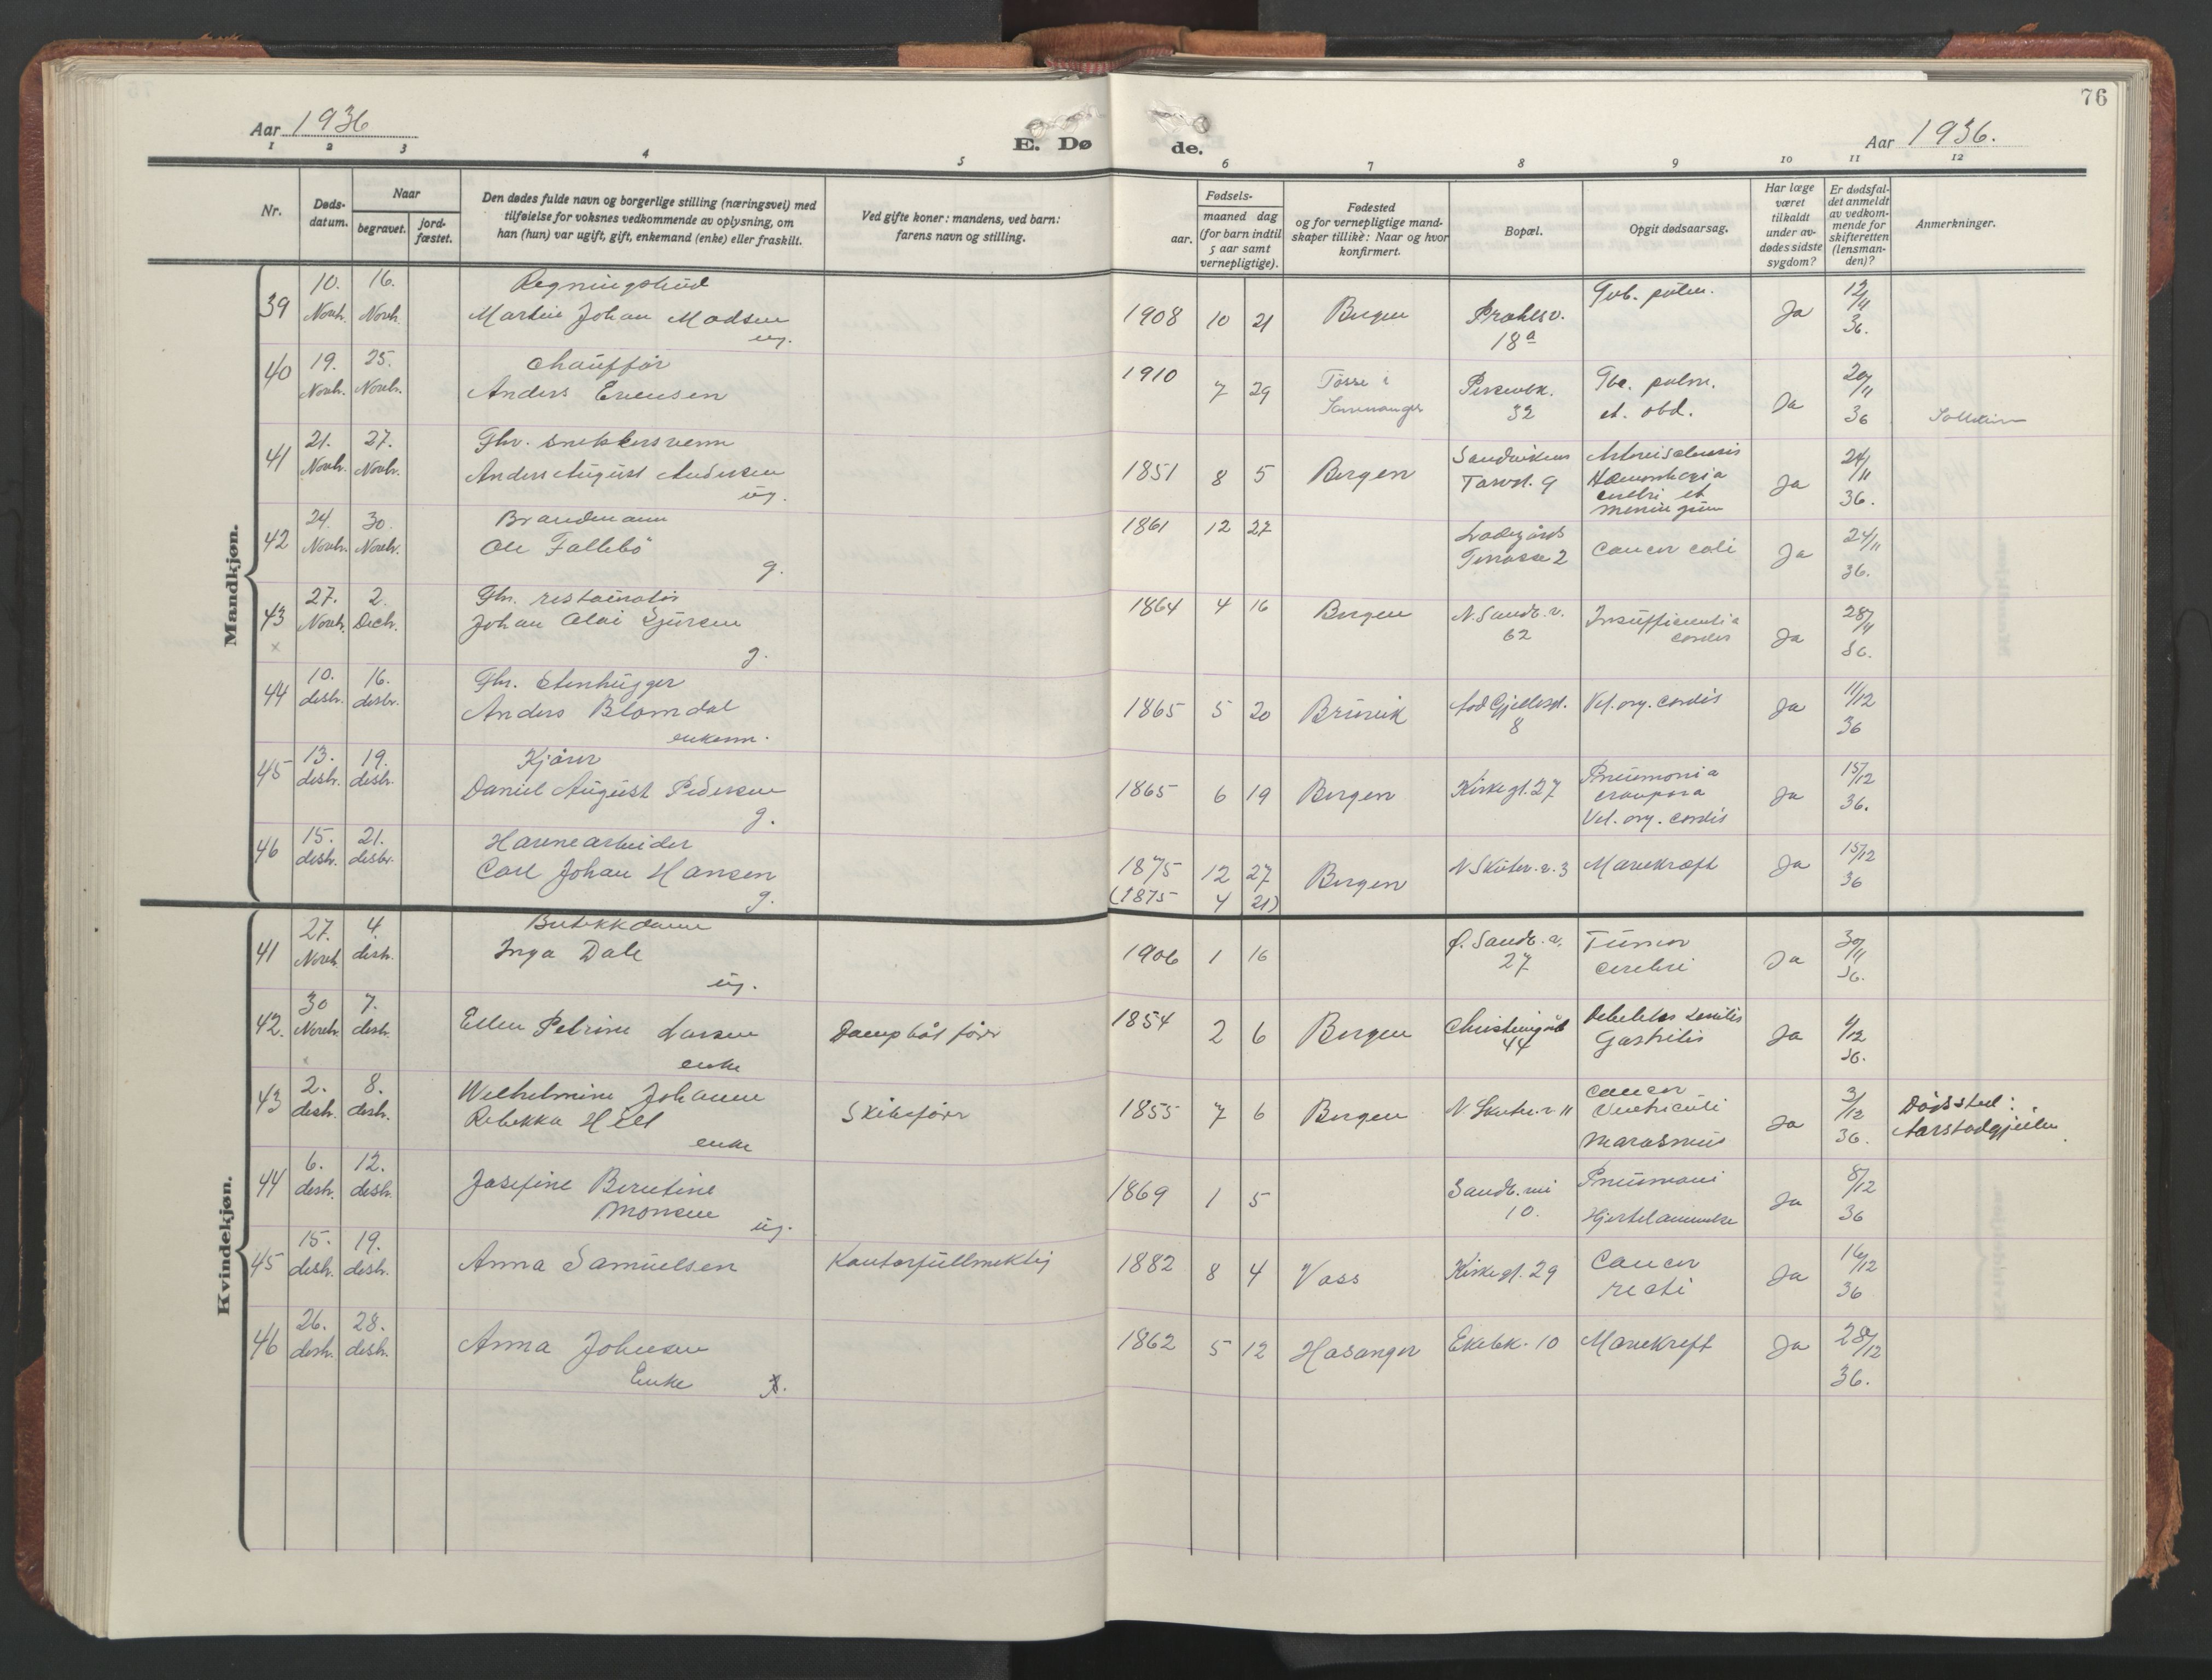 76
Aar 1936
E. Dø
de.
Aar 1936.
1 2 3 4 5 6 7 8 9 10 11 12
Nr.
Døds-
datum.
Naar
begravet.
jord-
fæstet.
Den dødes fulde navn og borgerlige stilling (næringsvei) med
tilføielse for voksnes vedkommende av oplysning, om
han (hun) var ugift, gift, enkemand (enke) eller fraskilt.
Ved gifte koner: mandens, ved barn:
farens navn og stilling.
Fødsels-
aar.
maaned dag
(for barn indtil
5 aar samt
vernepligtige).
Fødested
og for vernepligtige mand-
skaper tillike: Naar og hvor
konfirmert.
Bopæl.
Opgit dødsaarsag.
Har læge
været
tilkaldt
under av-
dødes sidste
sygdom?
Er dødsfal-
det anmeldt
av vedkom-
mende for
skifteretten
(lensman-
den)?
Anmerkninger.
Mandkjøn.
39 10. Novb. 16. Novb.
Martin Johan Madsen
ug.
1908 10 21 Bergen
18a
Tub. pulm.
Ja 12/11 36.
40 19. Novb. 25. Novb.
Chauffør
Anders Evensen
1910 7 29
32
Tbc. pulm.
et. obd.
Ja 20/11 36
41 21. Novb. 27. Novb.
Fhv. snekkersvenn
Anders August Andersen
ug.
1851 8 5 Bergen
Sandvikens
Torvgt. 9
Haemorrhagia
cerebri et
meningium
Ja 24/11 36.
42 24. Novb. 30. Novb.
Brandmann
Ole Fallebø
g.
1861 12 27
Ladegårds
Terrasse 2
Cancer coli
Ja 24/11 36.
43 27. Novb. 2. Decb.
x
Fhv. restauratør
Johan Olai Sjursen
g.
1864 4 16 Bergen
N. Sandv. v.
62
Insufficientia
cordis
Ja 28/11 36.
44 10. desb. 16. desbr.
Fhv. Stenhugger
Anders Blomdal
enkem.
1865 5 20 Bruvik
8
Vit. org. cordis
Ja 11/12 36
45 13. desb. 19. desb.
Kjører
Daniel August Pedersen
g.
1865 6 19 Bergen
Kirkegt. 27
Pneumonia
crouposa
Vit. org. cordis
Ja 15/12 36.
46 15. desb. 21. desbr.
Havnearbeider
Carl Johan Hansen
g.
1875 12 27
(1875 4 21)
Bergen
N Skutev. v. 3
Marekræft
Ja 15/12 36
Kvindekjøn.
41 27. Novb. 4. desb.
Butikkdame
Inga Dale
ug.
1906 1 16
Ø. Sandv. v.
27
Tumor
cerebri
Ja 30/11 36.
42. 30 Novb. 7. desb.
Ellen Petrine Larsen
enke
Dampbåtfører
1854 2 6 Bergen
44
Debilitas senilis
Gastritis
Ja 4/12 36.
43 2. desb. 8. desb.
Wilhelmine Johanne
Rebekka Hill
enke
Skibsfører
1855 7 6 Bergen
N Skutev. v 11
Cancer
Ventriculi
Marasmus
Ja 3/12 36.
Dødssted:
44 6. desb. 12. desb.
Josefine Berntine
Monsen
ug.
1869 1 5
10.
Pneumoni
Hjertelammelse
Ja 8/12 36
45 15. desb. 19. desb.
Anna Samuelsen
Kontorfullmektig
1882 8 4 Voss
Kirkegt. 29
Cancer
recti
Ja 16/12 36
46 26. desb. 28. desb.
Anna Johnsen
Enke
1862 5 12 Hosanger
Ekebk. 10
Mavekreft
Ja 28/12 36.